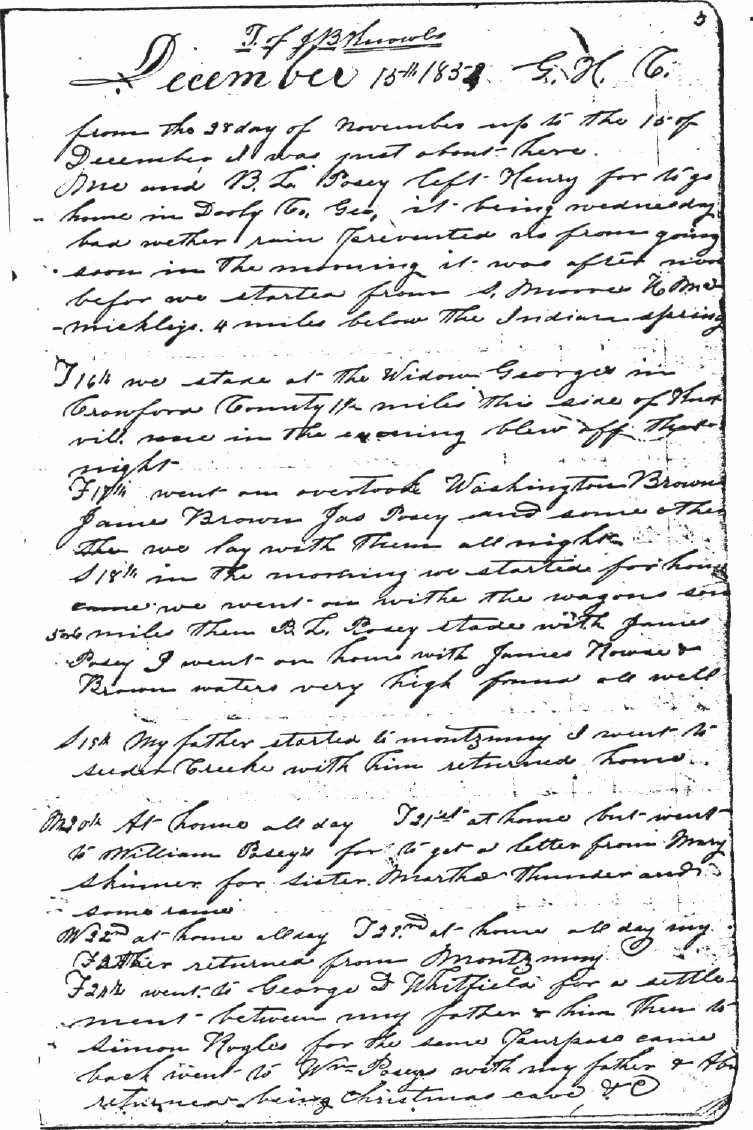 5
T. of J B Knowls
December 15th 1852 G. H. T.
from the 23 day of November up to the 15 of
December, I was just about here.
Me and B. L. Posey left Henry for to go
home in Dooly Co, Geo, it being wednesday
bad wether rain prevented us from going
soon in the morning it was after noon
befor we started from S. Moores
4 miles below the Indian spring
T 16th we stade at the Widow Georges in
Crowford County 1½ miles this side of
vil. in the evening blew off that
night
F 17th went on overtook Washington Brown
James Brown Jas Posey and some other
we lay with them all night
S 18th in the morning we started for home
we went on withe the wagons som
5 or 6 miles then B. L. Posey stade with James
Posey I went on home with James Rowse &
Brown waters very high found all well
S 19th My father started to montgumy I went to
seeder Creeke with him returned home.
M 20th At home all day T 21st at home but went
to William Posey's for to get a letter from Mary
Skinner for sister Martha thunder and
some raine
W 22nd at home all day T 23rd at home all day my
Father returned from Montgumy
F 24th went to George D Whitfield for a settle-
ment between my father & him then to
Simon Rogles for the same purpose came
back went to Wm Poseys with my father &
returned being Christmas eave &C